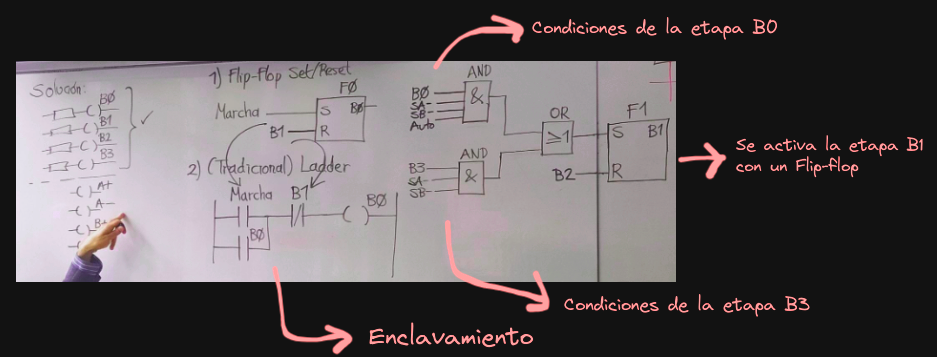 Condiciones de la etapa B0
Solución:
BØ
B1
B2
B3
A+
A-
B+
1) Flip-Flop Set/Reset
FØ
Marcha
S
BØ
B1
R
2) (Tradicional) Ladder
Marcha
B1
BØ
BØ
AND
BØ
SA-
SB-
Auto
&
AND
B3
SA-
SB-
&
OR
≥1
F1
S
B1
B2
R
Se activa la etapa B1
con un Flip-flop
Condiciones de la etapa B3
Enclavamiento